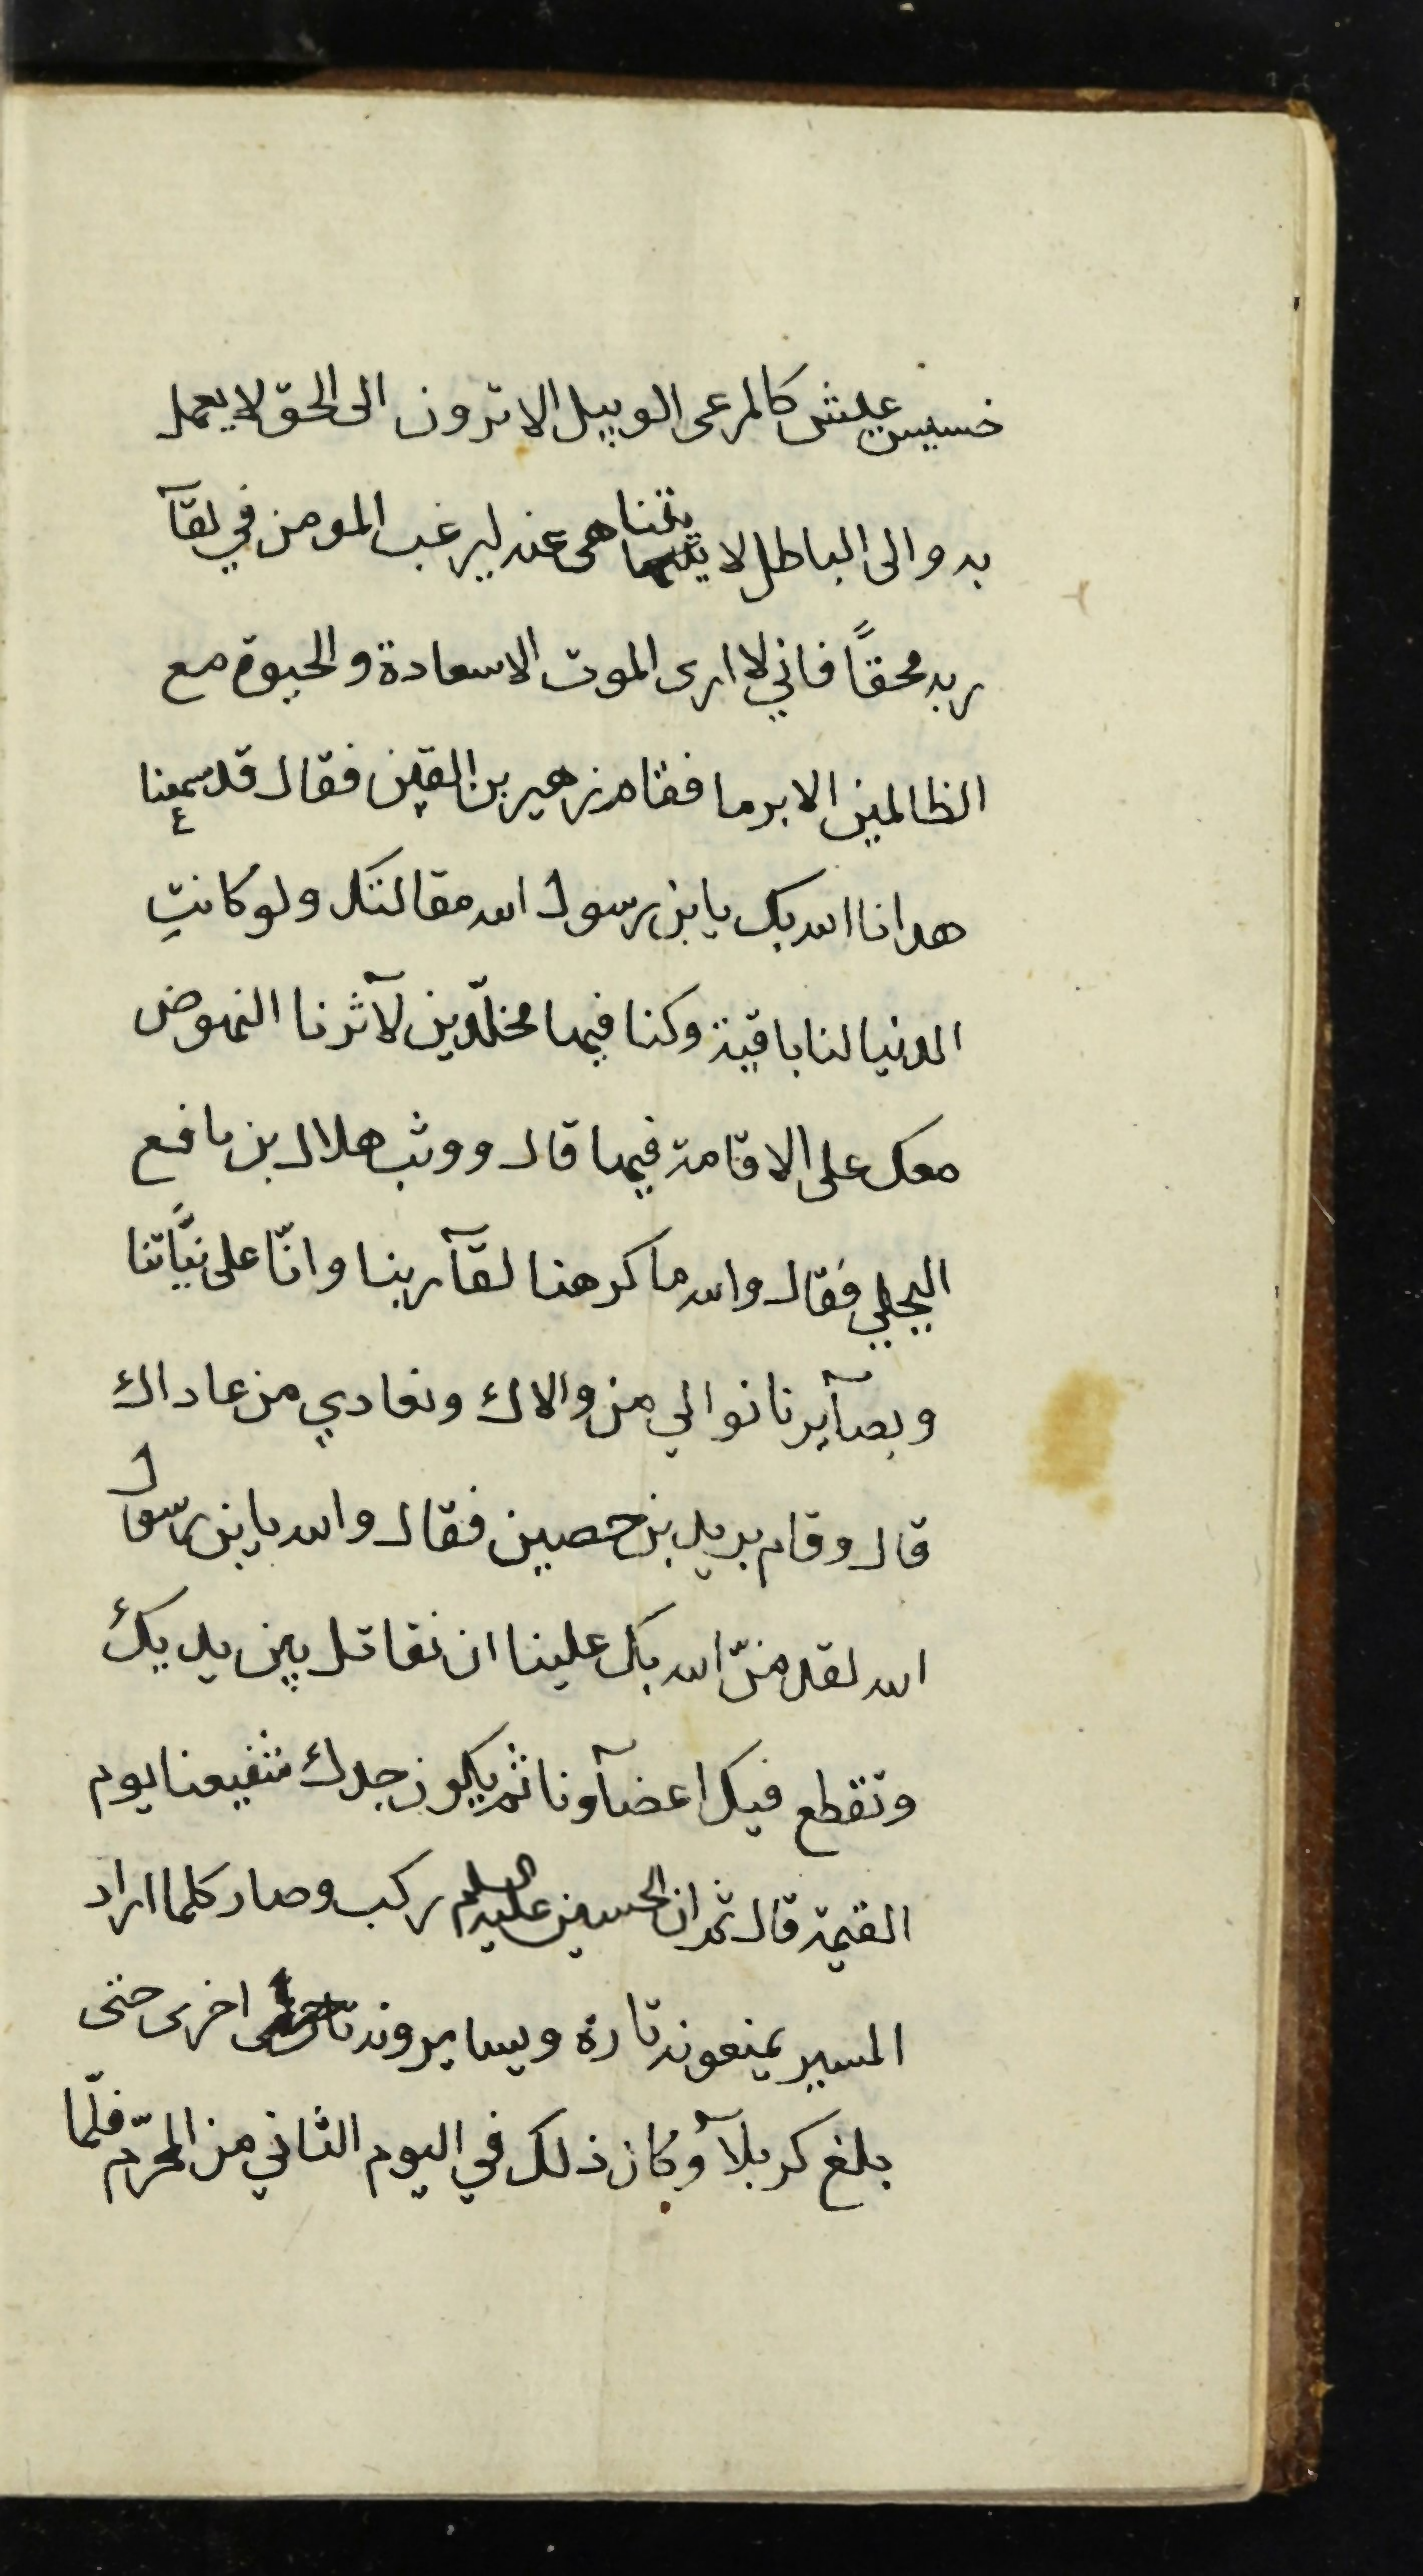 خسيس عيش كالمرعى الوبيل الا ترون الى الحق لا يعمل
به والى الباطل لا يتناهى عنه ليرغب المومن في لقآ
ربه محقاً فاني لا ارى الموت الا سعادة والحيوة مع
الظالمين الا برما فقام زهير بن القين فقال قد سمعنا
هدانا الله بك يا بن رسول الله مقالتك ولو كانت
الدنيا لنا باقية وكنا فيها مخلّدين لآثرنا النهوض
معك على الاقامة فيها قال ووثب هلال بن نافع
البجلي فقال والله ما كرهنا لقآ ربنا وانّا على نيّاتنا
وبصآيرنا نوالي من والاك ونعادي من عاداك
قال وقام بريد بن حصين فقال والله يا بن رسول
الله لقد منّ الله بك علينا ان نقاتل بين يديك
وتقطع فيك اعضآونا ثم يكون جدك شفيعنا يوم
القيمة قال ثم ان الحسين عليه السلم ركب وصار كلما اراد
المسير يمنعونه تارة ويسايرونه اخرى حتى
بلغ كربلآ وكان ذلك في اليوم الثاني من المحرّم فلّما